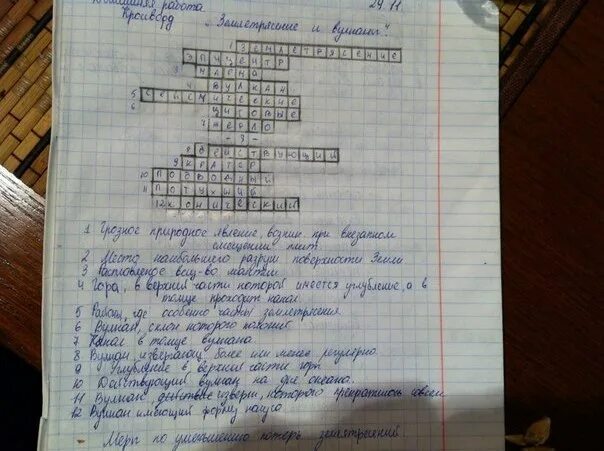 Домашняя работа 24.11
Кроссворд „Землетрясение и вулканы".
1 ЗЕМЛЕТРЯСЕНИЕ
ЭПИЦЕНТР
3 МАГМА
4 ВУЛКАН
5 СЕЙСМИЧЕСКИЕ
6 ЩИТОВЫЕ
7 ЖЕРЛО
- 3 -
8 ДЕЙСТВУЮЩИЙ
9 КРАТЕР
10 ПОДВОДНЫЙ
11 ПОТУХШИЙ
12 КОНИЧЕСКИЙ
1 Грозное природное явление, возник. при внезапном
смещении плит
2 Место наибольшего разруш поверхности Земли
3 Расплавленое вещ-во мантии
4 Гора, в верхней части которой имеется углубление, а в
толще проходит канал
5 Районы, где особенно часты землетрясения
6 Вулкан, склон которого пологий
7 Канал в толще вулкана.
8 Вулкан, извергающ. более или менее регулярно.
9 Углубление в верхней части горы
10 Действующий вулкан на дне океана.
11 Вулкан, действие изверж, которого прекратилось совсем
12 Вулкан имеющий форму конуса
Меры по уменьшению потерь землетрясений.